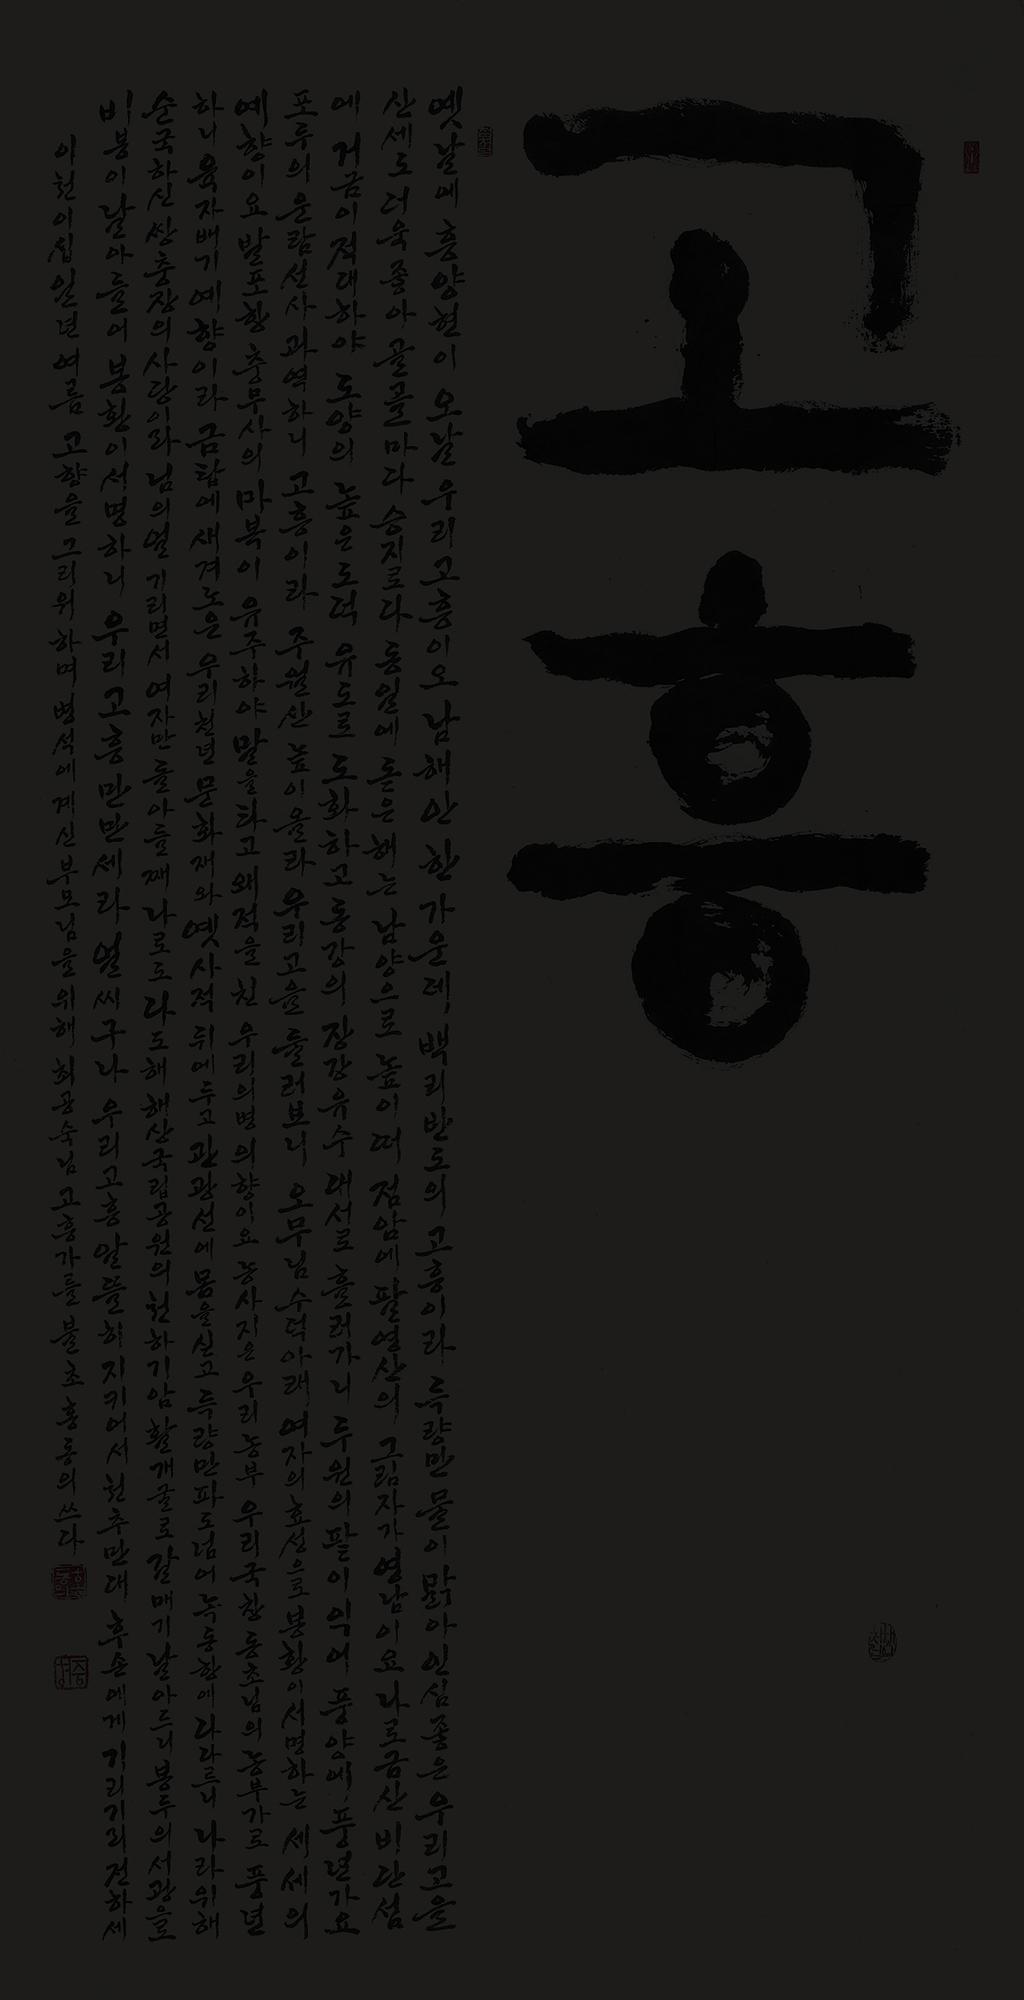 고흥
옛날에 흥양현이 오날 우리 고흥이오 남해안 한가운데 백리반도의 고흥이라 득량만 물이 맑아 인심 좋은 우리 고을
산세도 더욱 좋아 골골마다 승지로다 동일에 돋은 해는 남양으로 높이 떠 점암에 팔영산의 그림자가 영남이요 나로금산 비단섬
에 거금이 적대하야 도양의 높은 도덕 유도로 도화하고 동강의 장강유수 대서로 흘러가니 두원의 팥이 익어 풍양에 풍년가요
포두의 운람선사 과역하니 고흥이라 주월산 높이 올라 우리 고을 둘러보니 오무님 수덕 아래 여자의 효성으로 봉황이 서명하는 세세의
예향이요 발포항 충무사의 마북이 유주하야 말을 타고 왜적을 친 우리의병 의향이요 농사지은 우리 농부 우리 국창 동초님의 농부가로 풍년
하니 육자배기 예향이라 금탑에 새겨놓은 우리 천년 문화재와 옛 사적 뒤에 두고 관광선에 몸을 싣고 득량만 파도 넘어 녹동항에 다다르니 나라 위해
순국하신 쌍충장의 사당이라 님의 얼 기리면서 여자만 돌아들 때 나로도라 도해 해상국립공원의 천하기암 활개굴로 갈매기 날아드니 봉두의 서광을
비봉이 날아들어 봉환이 서명하니 우리 고흥 만만세라 얼씨구나 우리 고흥 알뜰히 지키어서 천추만대 후손에게 기리기리 전하세
이천이십일년 여름 고향을 그리워하며 병석에 계신 부모님을 위해 최공숙님 고흥가를 불초 홍동의 쓰다